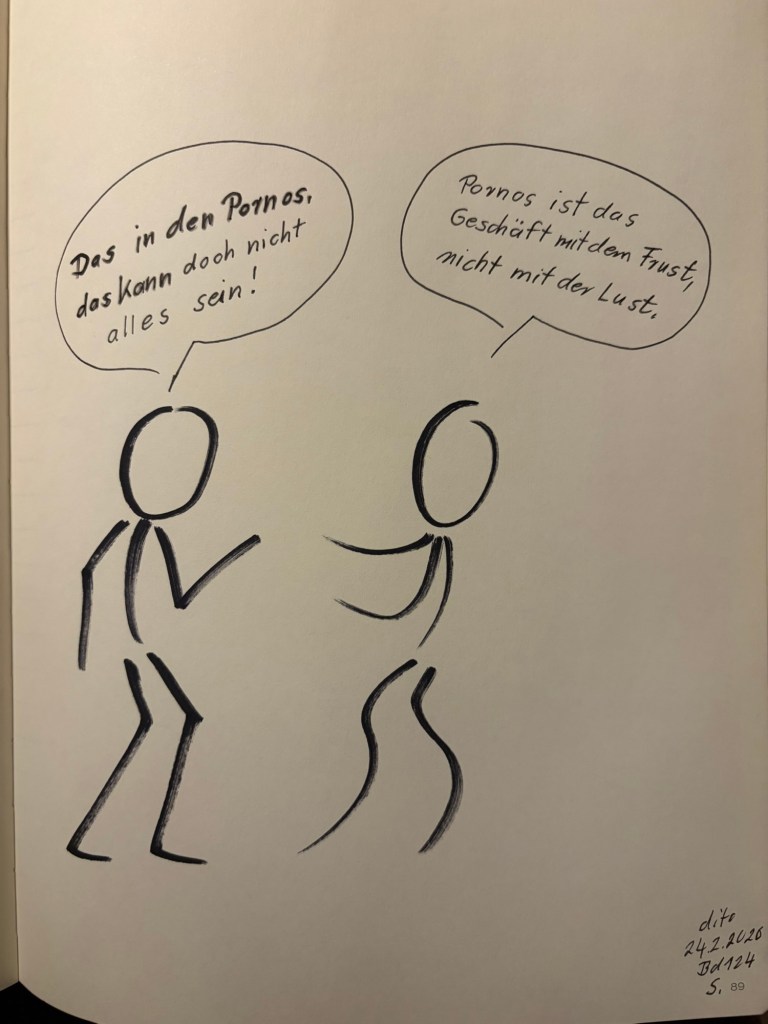 Das in den Pornos,
das kann doch nicht
alles sein!
Pornos ist das
Geschäft mit dem Frust,
nicht mit der Lust.
dito
24.2.2026
Bd 124
S. 89